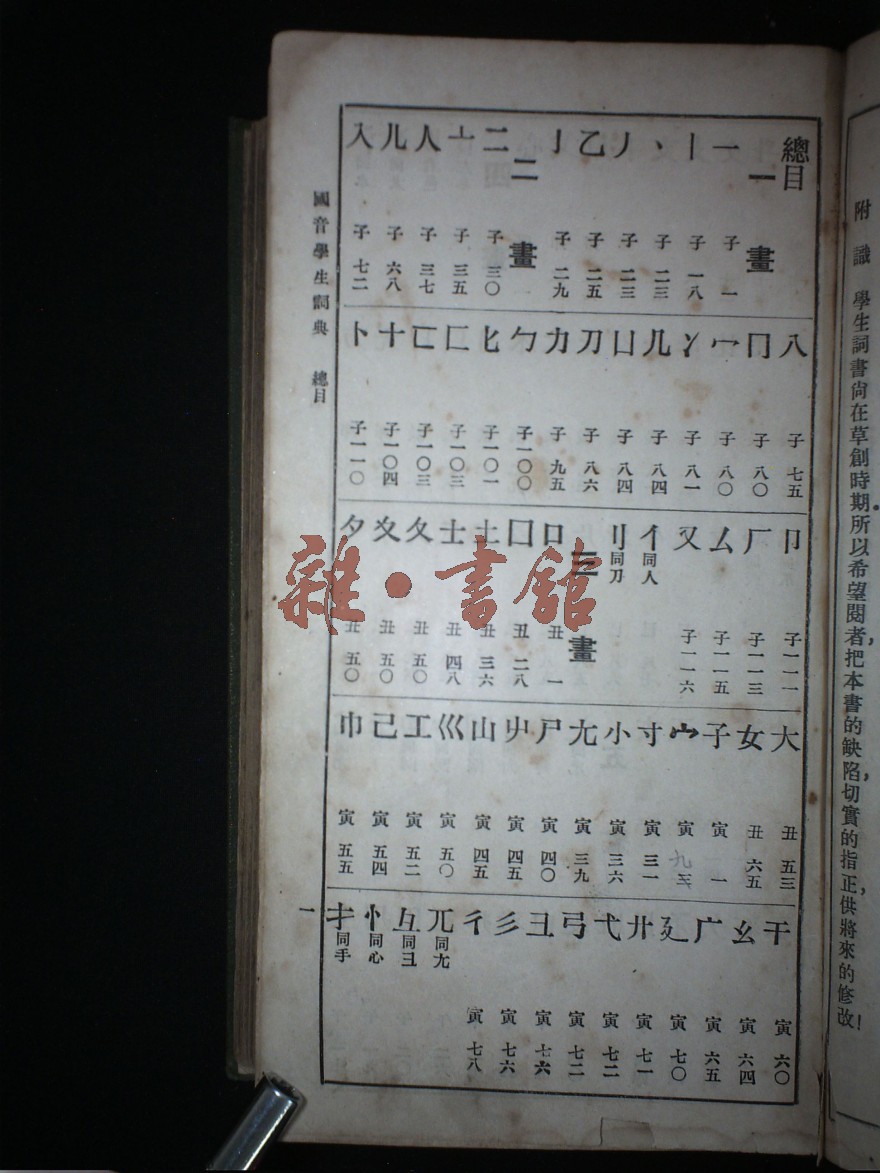 附識 學生詞書尙在草創時期,所以希望閱者,把本書的缺陷,切實的指正,供將來的修改!
總目
一畫
一 子 一
丨 子 一八
丶 子 二三
丿 子 二三
乙 子 二五
亅 子 二九
二畫
二 子 三〇
亠 子 三五
人 子 三七
儿 子 六八
入 子 七二
八 子 七五
冂 子 八〇
冖 子 八〇
冫 子 八一
几 子 八四
凵 子 八四
刀 子 八六
力 子 九五
勹 子一〇〇
匕 子一〇一
匚 子一〇三
匸 子一〇三
十 子一〇四
卜 子一一〇
卩 子一一一
厂 子一一三
厶 子一一五
又 子一一六
亻同人
刂同刀
三畫
口 丑 一
囗 丑 二八
土 丑 三六
士 丑 四八
夂 丑 五〇
夊 丑 五〇
夕 丑 五〇
大 丑 五三
女 丑 六五
子 寅 一
宀 寅
寸 寅 三一
小 寅 三六
尢 寅 三九
尸 寅 四〇
屮 寅 四五
山 寅 四五
巛 寅 五〇
工 寅 五二
己 寅 五四
巾 寅 五五
干 寅 六〇
幺 寅 六四
广 寅 六五
廴 寅 七〇
廾 寅 七一
弋 寅 七二
弓 寅 七二
彐 寅 七六
彡 寅 七六
彳 寅 七八
兀同尢
彑同彐
忄同心
扌同手
國音學生詞典 總目
一
雜·書館